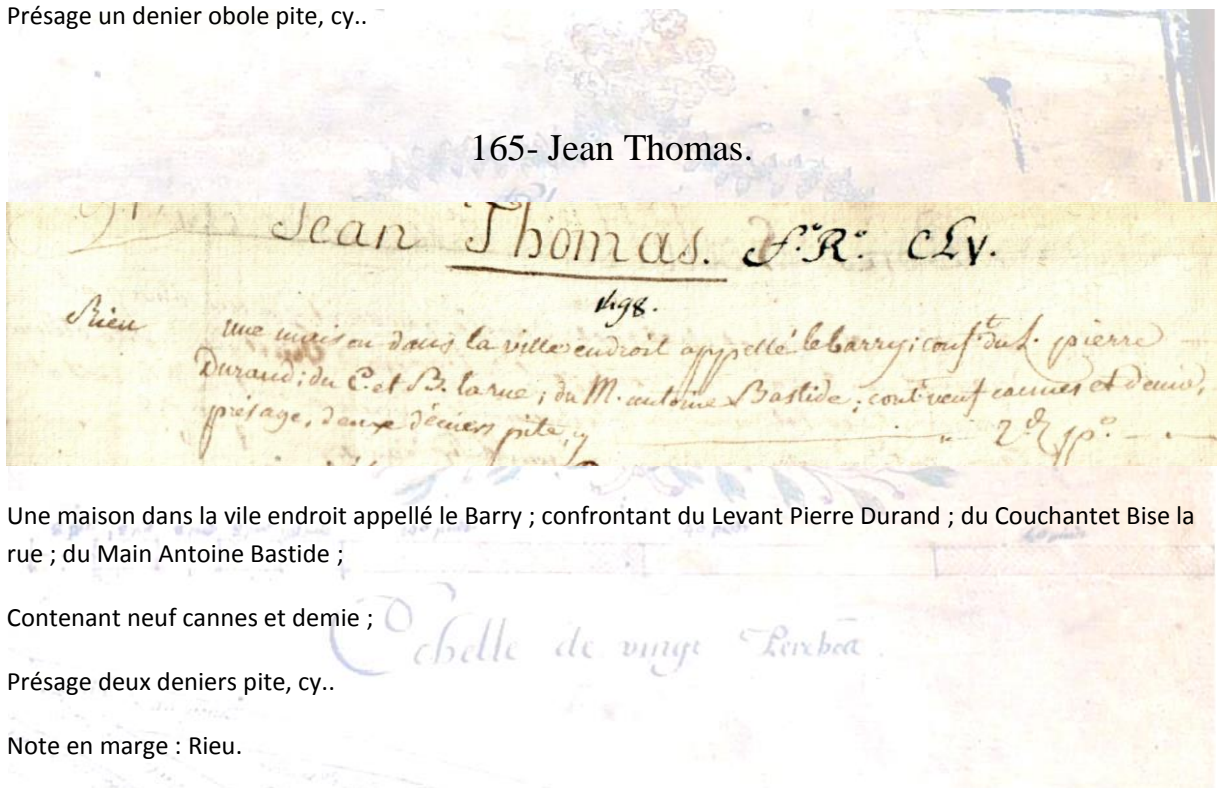 Présage un denier obole pite, cy..
165- Jean Thomas.
Jean Thomas. f.° R.° CLV.
1498.
Rieu une maison dans la ville endroit appellé le barry; conf.t du L. pierre
Durand; du C. et B. la rue; du M. antoine Bastide; cont. neuf cannes et demie,
présage, deux déniers pite, cy 2 d p.°
Une maison dans la vile endroit appellé le Barry ; confrontant du Levant Pierre Durand ; du Couchantet Bise la
rue ; du Main Antoine Bastide ;
Contenant neuf cannes et demie ;
Echelle de vingt
Présage deux deniers pite, cy..
Note en marge : Rieu.